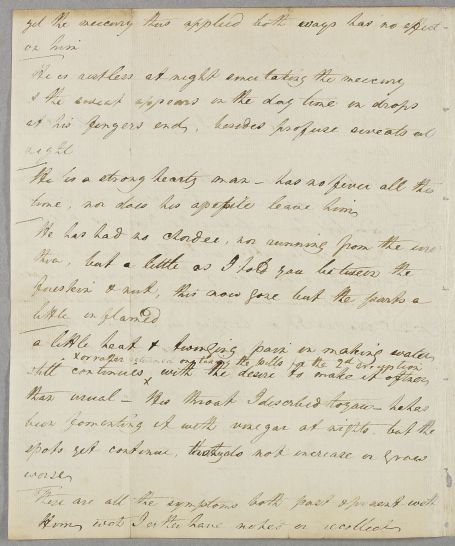 yet the mercury thus applied both ways has no effect
on him
He is restless at night since taking the mercury
& the sweat appears in the day time in drops
at his fingers ends, besides profuse sweats at
night
He is a strong hearty man – has no fever all this
time, nor does his apetite leave him
He has had no chordee, nor running from the ure
thra, but a little as I told you between the
foreskin & nut, this now gone but the parts a
little inflamed
a little heat & twinging pain in making water
x or rather returned on taking the pills for the 2d eruption
still continues x with the desire to make it oftener
than usual – His throat I described to you he has
been fomenting it with vinegar at nights but the
spots yet continue, tho they do not increase or grow
worse
These are all the symptoms both past & present with
Him, I have noted or recollect